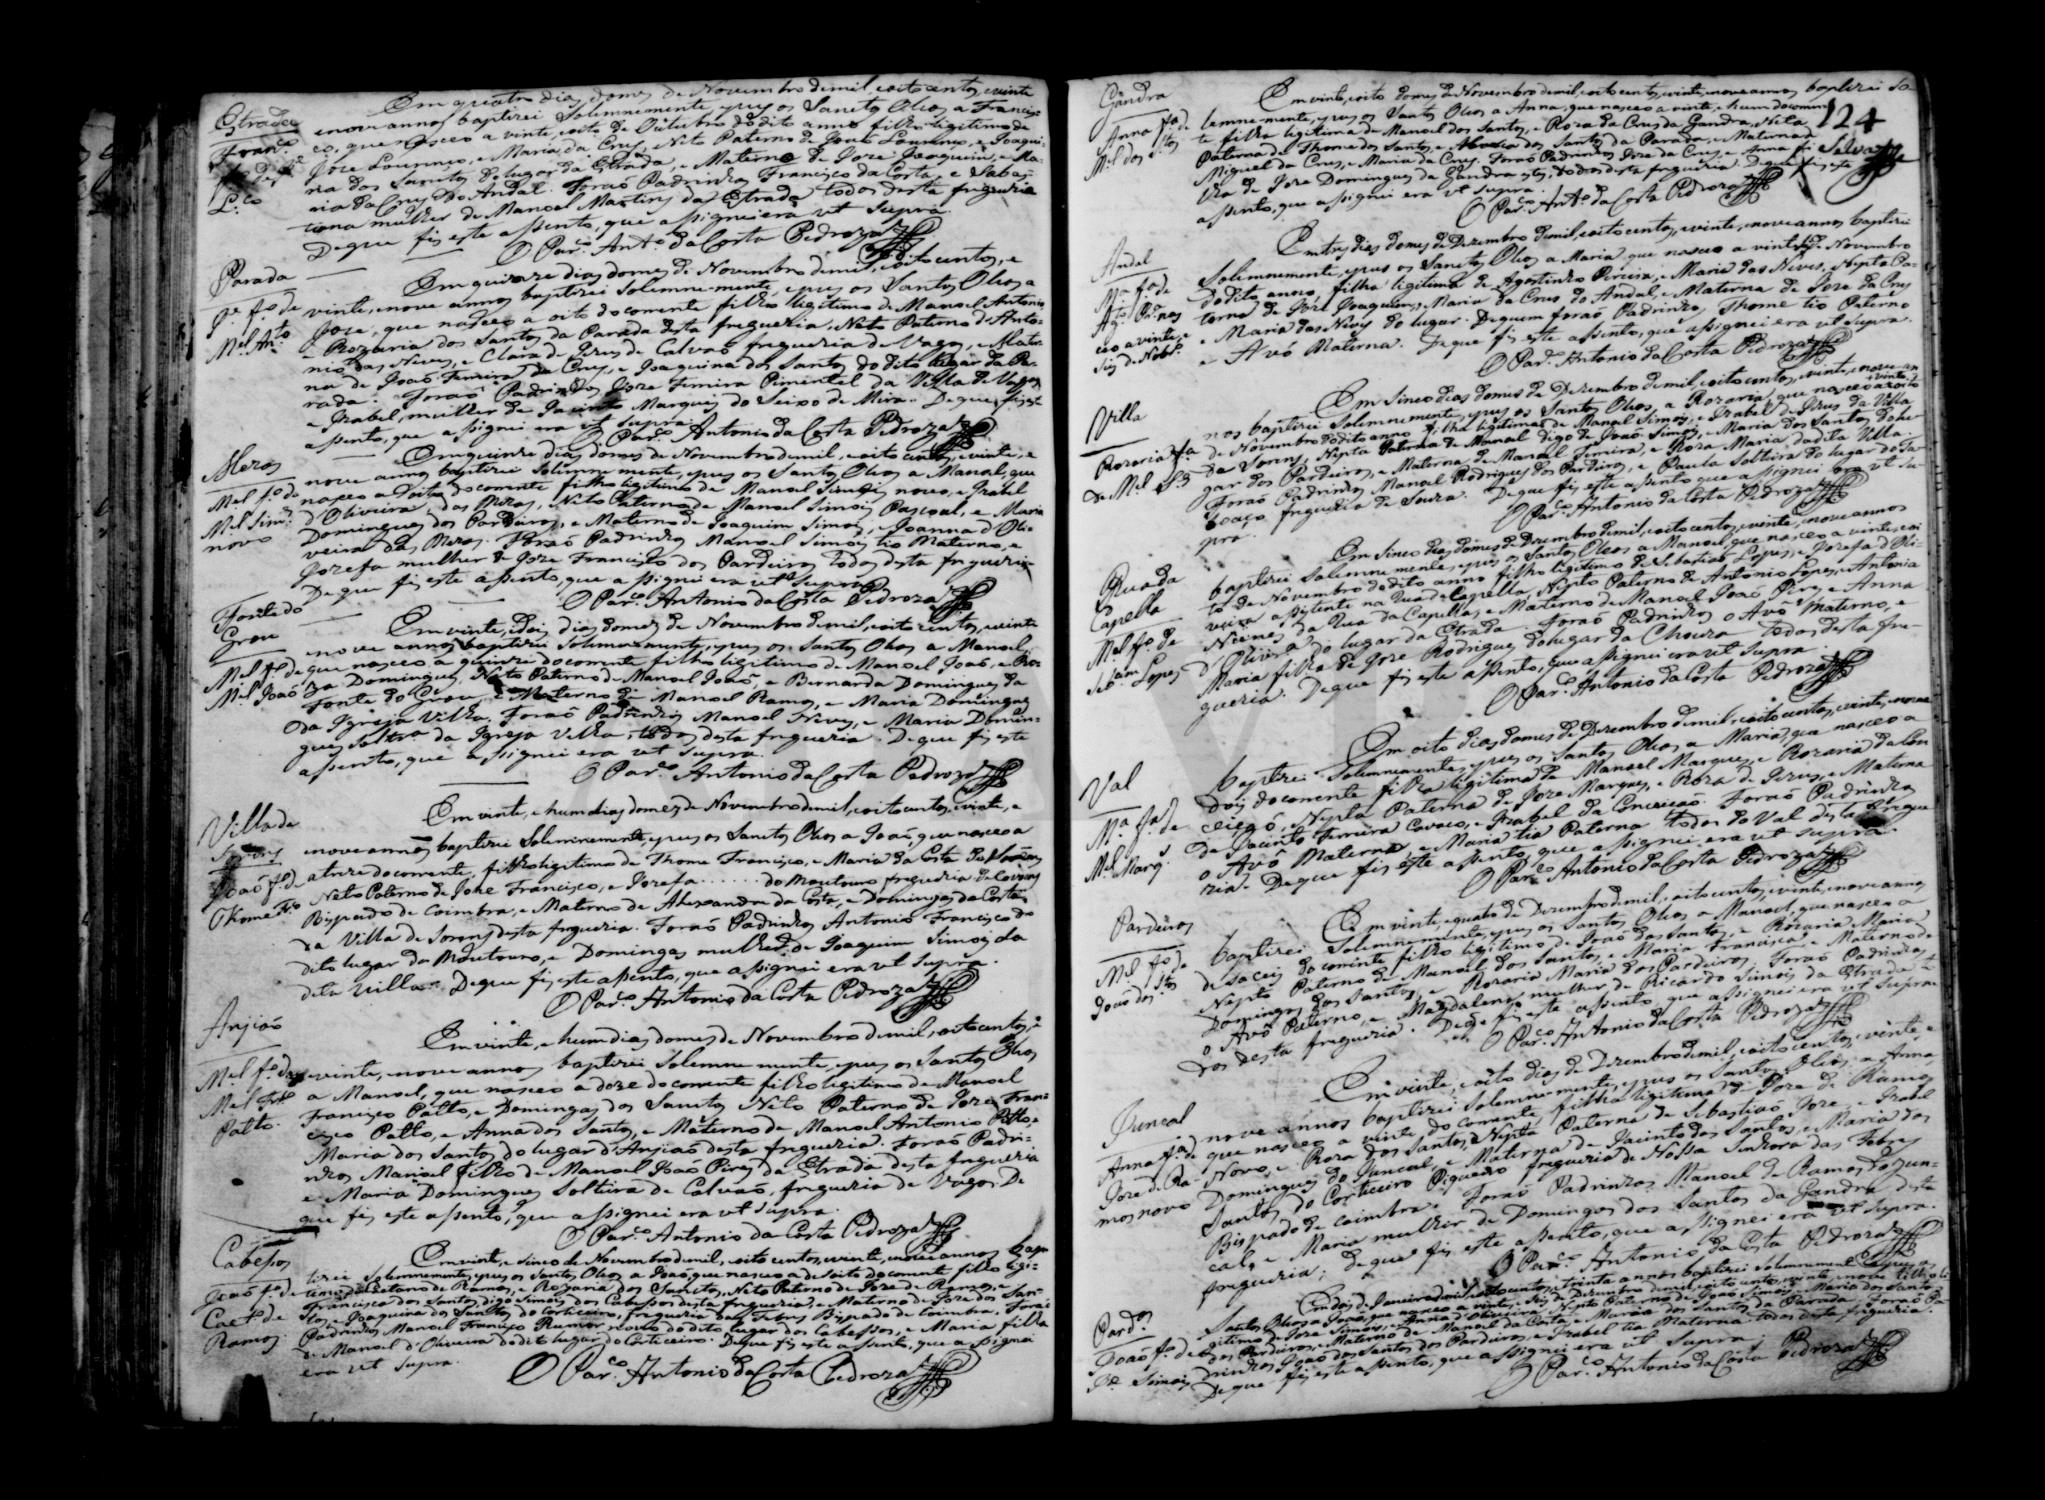 Estrada
Fran.co
L.ço
Em quatro dias domes de Novembro demil, eoito centos, evinte
enove annos baptizei Solemnemente, epus os Sanctos Oleos a Francis-
co, que nasceo a vinte, eoito de Outubro dodito anno filho legitimo de
Joze Lourenço, e Maria da Crus, Neto Paterno de Joaõ Lourenço, e Joaqui-
na dos Sanctos do lugar da Estrada, e Materno de Joze Joaquim, e Ma-
ria da Crus do Andal. Foraõ Padrinhos Francisco da Costa, e Sabas-
tiana mulher de Manoel Martins da Estrada todos desta freguezia
Deque fis este assento, que assignei era vt supra.
O Par.co Ant.o da Costa Pedroza
Parada
J.e f.o de
M.el An.to
Em quinze dias domes de Novembro demil, eoito centos, e
vinte, enove annos baptizei Solemne-mente, epus os Santos Oleos a
Joze, que nasceo a oito docorrente filho legitimo de Manoel Antonio
e Rozaria dos Santos da Parada desta freguezia, Neto Paterno d'Anto-
nio das Neves, e Clara de Jezus de Calvaõ freguezia de Vagos, e Mater-
no de Joaõ Ferreira da Crus, e Joaquina dos Santos do dito lugar da Pa-
rada. Foraõ Padrinhos Joze Ferreira Pimentel da Villa de Vagos
e Izabel mulher de Jacinto Marques do Seixo de Mira. Deque fis este
assento, que assignei era vt supra.
O Par.co Antonio da Costa Pedroza
Mezas
M.el f.o de
M.el Simões
novo
Em quinze dias domes de Novembro demil, eoito centos, evinte, e
nove annos baptizei Solemne mente, epus os Santos Oleos a Manoel, que
nasceo a oito docorrente filho legitimo de Manoel Simoes novo, e Izabel
d'Oliveira das Mezas, Neto Paterno de Manoel Simoes Pascoal, e Maria
Domingues dos Pardeiros, e Materno de Joaquim Simoes, e Joanna d'Oli-
veira das Mezas. Foraõ Padrinhos Manoel Simoes tio Materno, e
Jozefa mulher de Joze Francisco dos Pardeiros todos desta freguezia
Deque fis este assento, que assignei era vt supra.
O Par.co Antonio da Costa Pedroza
Fonte do
Grou
M.el f.o de
M.el Joaõ
Em vinte, edois dias domes de Novembro demil, eoito centos, evinte
enove annos baptizei Solemnemente, epus os Santos Oleos a Manoel,
que nasceo a quinze docorrente filho legitimo de Manoel Joaõ, e Ro-
za Domingues, Neto Paterno de Manoel Joaõ, e Bernarda Domingues da
Fonte do Grou, e Materno de Manoel Ramos, e Maria Domingues
da Igreja Velha. Foraõ Padrinhos Manoel Neves, e Maria Domin-
gues soltr.a da Igreja Velha, todos desta freguezia. Deque fis este
assento, que assignei era vt supra.
O Par.co Antonio da Costa Pedroza
Villa de
Joaõ f.o de
Thome Fr.co
Em vinte, e hum dias domes de Novembro demil, eoito centos, evinte, e
nove annos baptizei Solemnemente, epus os Sanctos Oleos a Joaõ, que nasceo a
atreze docorrente, filho legitimo de Thome Francisco, e Maria da Costa
Neto Paterno de Joze Francisco, e Jozefa ...... do Montouro freguezia de
Bispado de Coimbra, e Materno de Alexandre da Costa, e Domingas da Costa
da Villa de Sorens desta freguezia. Foraõ Padrinhos Antonio Francisco do
dito lugar do Montouro, e Domingas mulher de Joaquim Simoes da
dita Villa. Deque fis este assento, que assignei era vt supra.
O Par.co Antonio da Costa Pedroza
Anjiaõ
M.el f.o de
M.el Fr.co
Patto.
Em vinte, e hum dias domes de Novembro demil, eoito centos, e
vinte, enove annos baptizei Solemne mente, epus os Santos Oleos
a Manoel, que nasceo a doze docorrente filho legitimo de Manoel
Francisco Patto, e Domingas dos Santos Neto Paterno de Joze Fran-
cisco Patto, e Anna dos Santos, e Materno de Manoel Antonio Patto, e
Maria dos Santos do lugar d'Anjiaõ desta freguezia. Foraõ Padri-
nhos Manoel filho de Manoel Joaõ Pires da Estrada desta freguezia
e Maria Domingues Solteira de Calvaõ, freguezia de Vagos. De
que fis este assento, que assignei era vt supra.
O Par.co Antonio da Costa Pedroza
Cabessos
Joaõ f.o de
Caet.o de
Ramos.
Em vinte, e sinco de Novembro demil, eoito centos, evinte, enove annos bap-
tizei Solemnemente, epus os Santos Oleos a Joaõ, que nasceo a desoito docorrente filho legi-
timo de Caetano de Ramos, e Rozaria dos Sanctos, Neto Paterno de Joze de Ramos, e
Francisca dos Santos, digo Simoes dos Cabessos desta freguezia, e Materno de Joze dos San-
tos, e Joaquina dos Santos do Corticeiro, freguezia das Febres Bispado de Coimbra. Foraõ
Padrinhos Manoel Francisco Rumor novo do dito lugar dos Cabessos, e Maria filha
de Manoel d'Oliveira do dito lugar do Corticeiro. Deque fis este assento, que assignei
era vt supra.
O Par.co Antonio da Costa Pedroza
124
Gandra
Anna f.a de
M.el dos S.tos
Em vinte, eoito domes de Novembro demil, eoito centos, evinte, enove annos baptizei So-
lemne-mente, epus os Santos Oleos a Anna, que nasceo a vinte, e hum docorren-
te filha legitima de Manoel dos Santos, e Roza da Crus da Gandra, Neta
Paterna de Thome dos Santos, e Maria dos Santos da Parada, e Materna de
Miguel da Crus, e Maria da Crus. Foraõ Padrinhos Joze da Crus, e Anna fi-
lha de Joze Domingues da Gandra todos desta freguezia. Deque fis este
assento, que assignei era vt supra.
O Par.co Ant.o da Costa Pedroza
Andal
M.a f.a de
Em tres dias domes de Dezembro demil, eoito centos, evinte, enove annos baptizei
Solemnemente, epus os Sanctos Oleos a Maria que nasceo a vinte de Novembro
dodito anno, filha legitima de Agostinho Pereira, e Maria das Neves, Nepta Pa-
terna de Joze Joaquim, e Maria da Crus do Andal, e Materna de Joze da Crus
e Maria das Neves do lugar. Dequem foraõ Padrinhos, Thome tio Paterno
e Avó Materna. Deque fis este assento, que assignei era vt supra.
O Par.co Antonio da Costa Pedroza
Villa
Rozaria f.a
de M.el S.es
Em sinco dias domes de Dezembro demil, eoito centos, evinte, enove an-
nos baptizei Solemnemente, epus os Santos Oleos, a Rozaria, que nasceo
de Novembro dodito anno filha legitima de Manoel Simoes, e Izabel de Jezus da Villa
de Sorens, Nepta Paterna de Manoel digo de Joaõ Simoes, e Maria dos Santos, do lu-
gar dos Pardeiros, e Materna de Manoel Ferreira, e Roza Maria dadita Villa.
Foraõ Padrinhos Manoel Rodrigues dos Pardeiros, e Paula Solteira do lugar do
boaço freguezia de Souza. Deque fis este assento que assignei era vt su-
pra.
O Par.co Antonio da Costa Pedroza
Rua da
Capella
M.el f.o de
Seb.am Lopes
Em sinco dias domes de Dezembro demil, eoito centos, evinte, enove annos
baptizei Solemnemente, epus os Santos Oleos a Manoel, que nasceo a vinte, eoi-
to de Novembro dodito anno filho legitimo de Sebastiaõ Lopes, e Jozefa d'Oli-
veira assistente na Rua da Capella, Nepto Paterno de Antonio Lopes, e Antonia
Nunes da Rua da Capella, e Materno de Manoel Joaõ Pires, e Anna
d'Oliveira do lugar da Estrada. Foraõ Padrinhos o Avô Materno, e
Maria filha de Joze Rodrigues do lugar da Chouza todos desta fre-
guezia. Deque fis este assento, que assignei era vt supra.
O Par.co Antonio da Costa Pedroza
Val
M.a f.a de
M.el Marq.s
Em oito dias domes de Dezembro demil, eoito centos, evinte, enove
baptizei Solemnemente, epus os Santos Oleos a Maria, que nasceo a
dois docorrente filha legitima de Manoel Marques, e Rozaria da Con-
ceiçaõ, Nepta Paterna de Joze Marques, e Roza de Jezus, e Materna
de Jacinto Ferreira Cavaco, e Izabel da Conceiçaõ. Foraõ Padrinhos
o Avô Materno, e Maria tia Paterna todos do Val desta fregue-
zia. Deque fis este assento, que assignei era vt supra.
O Par.co Antonio da Costa Pedroza
Pardeiros
M.el f.o de
Joaõ dos S.tos
Em vinte, equatro de Dezembro demil, eoito centos, evinte, enove annos
baptizei Solemnemente, epus os Santos Oleos a Manoel, que nasceo a
desaceis docorrente filho legitimo de Joaõ dos Santos, e Rozaria Maria
Nepto Paterno de Manoel dos Santos, e Maria Francisca, e Materno de
Domingos dos Santos, e Rozaria Maria dos Pardeiros. Foraõ Padrinhos
o Avô Paterno, e Magdalena mulher de Ricardo Simoes da Estrada to-
dos desta freguezia. Deque fis este assento, que assignei era vt supra.
O Par.co Antonio da Costa Pedroza
Juncal
Anna f.a de
Joze de Ra-
mos novo
Em vinte, eoito dias de Dezembro demil, eoito centos, evinte, e
nove annos baptizei Solemne-mente, epus os Santos Oleos a Anna
que nasceo a vinte do corrente, filha legitima de Joze de Ramos
Novo, e Roza dos Santos, Nepta Paterna de Sebastiaõ Joze, e Izabel
Domingues do Juncal, e Materna de Jacinto dos Santos, e Maria dos
Santos do Corticeiro Piqueno freguezia de Nossa Senhora das Febres
Bispado de Coimbra. Foraõ Padrinhos Manoel de Ramos do Jun-
cal, e Maria mulher de Domingos dos Santos da Gandra desta
freguezia; deque fis este assento, que assignei era vt supra.
O Par.co Antonio da Costa Pedroza
Pard.os
Joaõ f.o de
J.e Simoes
Em dois de Janeiro demil, eoito centos, e trinta annos baptizei Solemnemente, epus os
Santos Oleos a Joaõ, que nasceo a vinte, e seis de Dezembro demil, eoito centos, evinte, enove filho le-
gitimo de Joze Simoes, e Anna d'Oliveira, Nepto Paterno de Joaõ Simoes, e Maria dos Santos
dos Pardeiros, e Materno de Manoel da Costa, e Maria dos Santos da Parada. Foraõ Pa-
drinhos Joaõ dos Santos dos Pardeiros, e Izabel tia Materna todos desta freguezia.
Deque fis este assento, que assignei era vt supra.
O Par.co Antonio da Costa Pedroza